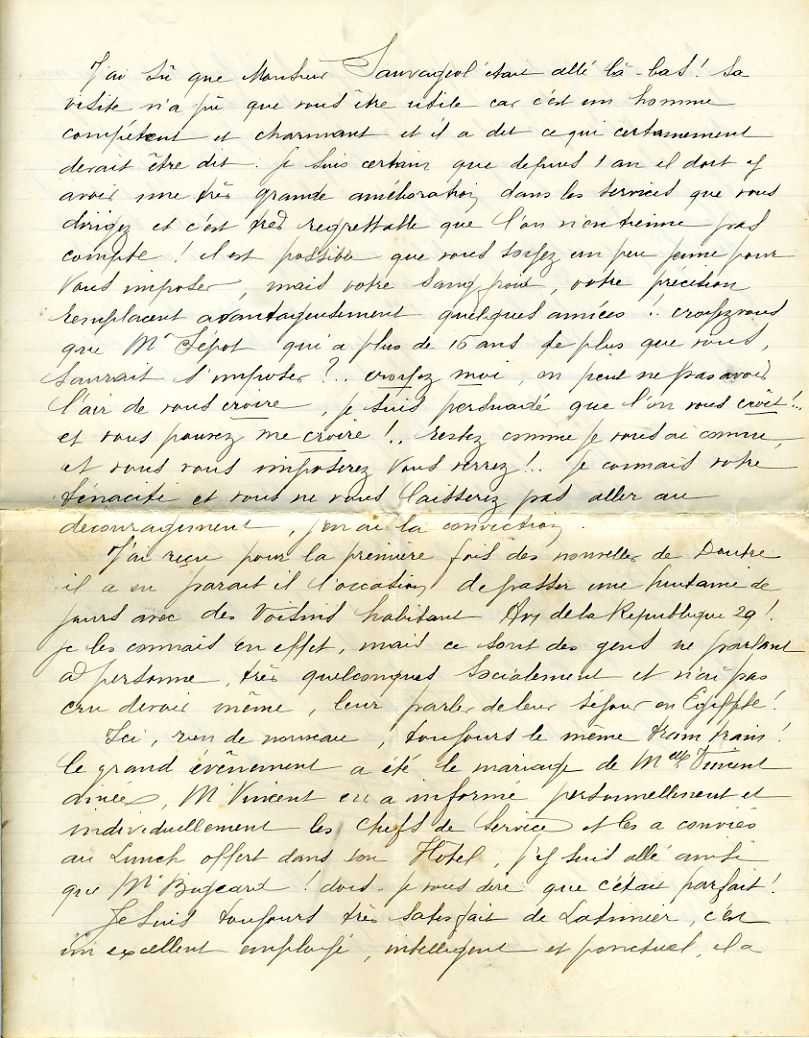 J'ai sû que Monsieur Sauvageol était allé là-bas! Sa
visite n'a pû que vous être utile car c'est un homme
compétent et charmant et il a dit ce qui certainement
devait être dit. Je suis certain que depuis 1 an il doit y
avoir une très grande amélioration dans les services que vous
dirigez et c'est très regrettable que l'on n'en tienne pas
compte! il est possible que vous soyez un peu jeune pour
vous imposer, mais votre sang froid, votre précision
remplacent avantageusement quelques années!! croyez vous
que Mr qui a plus de 15 ans de plus que vous,
saurait s'imposer?.. croyez moi, on peut ne pas avoir
l'air de vous croire, je suis persuadé que l'on vous croit!..
et vous pouvez me croire!.. restez comme je vous ai connu,
et vous vous imposerez vous verrez!.. je connais votre
ténacité et vous ne vous laisserez pas aller au
découragement, j'en ai la conviction.
J'ai reçu pour la première fois des nouvelles de Doutre
il a eu parait il l'occasion de passer une huitaine de
jours avec des voisins habitant Av de la République 29!
je les connais en effet, mais ce sont des gens ne parlant
à personne, très quelconques socialement et n'ai pas
cru devoir même, leur parler de leur séjour en Egypte!
Ici, rien de nouveau, toujours le même train train!
le grand évènement a été le mariage de Melle Vincent
ainée, Mr Vincent en a informé personnellement et
individuellement les chefs de service et les a conviés
au Lunch offert dans son Hôtel, j'y suis allé ainsi
que Mr ! dois-je vous dire que c'était parfait!
Je suis toujours très satisfait de Latimier, c'est
un excellent employé, intelligent et ponctuel, il a